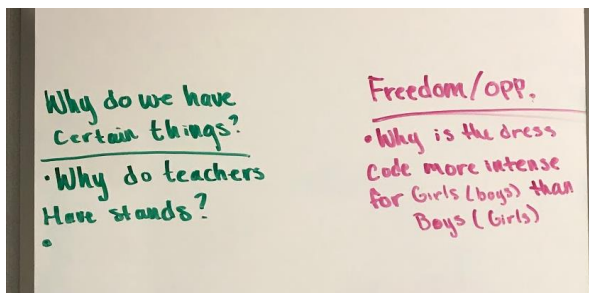 Why do we have
certain things?
•Why do teachers
Have stands?
•
Freedom/opp.
•Why is the dress
code more intense
for Girls (boys) than
Boys (Girls)